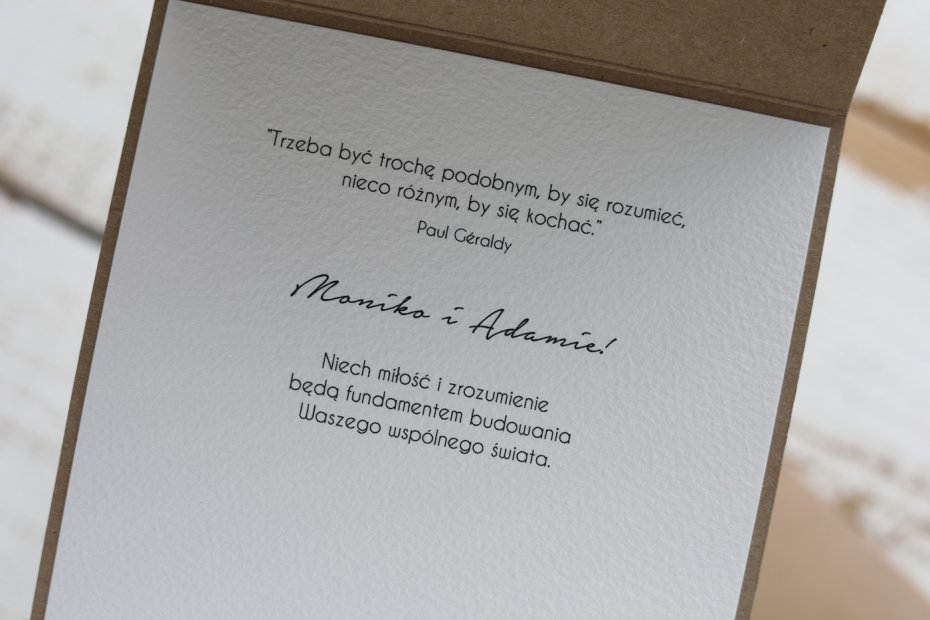 "Trzeba być trochę podobnym, by się rozumieć,
nieco różnym, by się kochać."
Paul Géraldy
Moniko i Adamie!
Niech miłość i zrozumienie
będą fundamentem budowania
Waszego wspólnego świata.